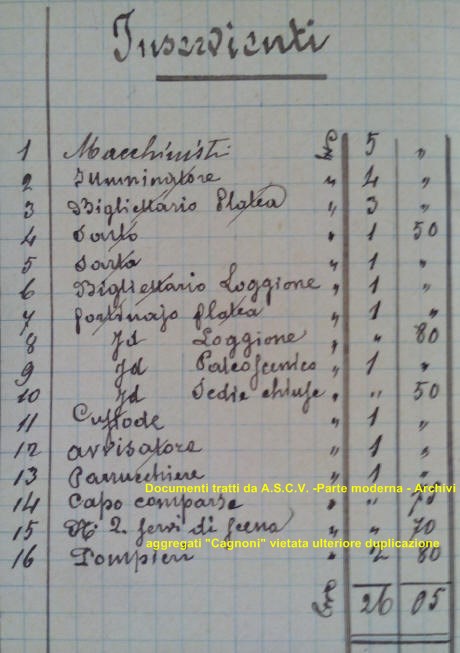 Inservienti
1 Macchinisti Lire 5 "
2 Illuminatore " 4 "
3 Bigliettario Platea " 3 "
4 Sarto " 1 50
5 Sarta " 1 "
6 Bigliettario Loggione " 1 "
7 Portinajo platea " 1 "
8 Id Loggione " " 80
9 Id Palcoscenico " 1 "
10 Id Sedie chiuse " " 50
11 Custode " 1 "
12 avvisatore " 1 "
13 Parrucchiere " 1 "
Documenti tratti da A.S.C.V. -Parte moderna - Archivi
14 Capo comparse " " 75
15 N° 2 servi di scena " " 70
aggregati "Cagnoni" vietata ulteriore duplicazione
16 Pompieri " 2 80
Lire 26 05